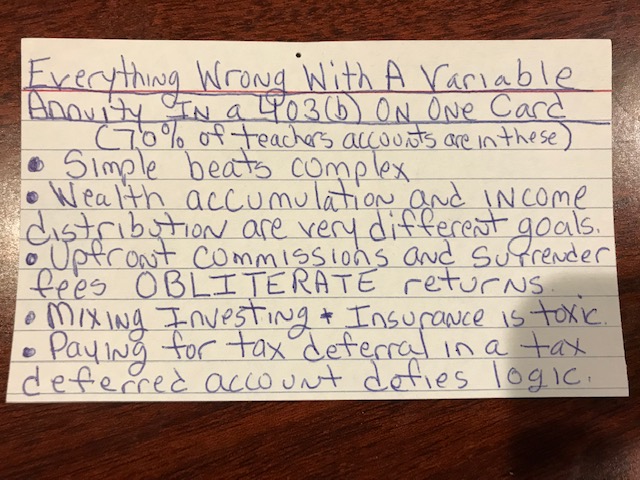 Everything Wrong With A Variable
Annuity In a 403(b) ON ONE Card
(70% of teachers accounts are in these)
• Simple beats complex
• Wealth accumulation and income
distribution are very different goals.
• Upfront commissions and Surrender
fees OBLITERATE returns.
• Mixing Investing + Insurance is toxic.
• Paying for tax deferral in a tax
deferred account defies logic.